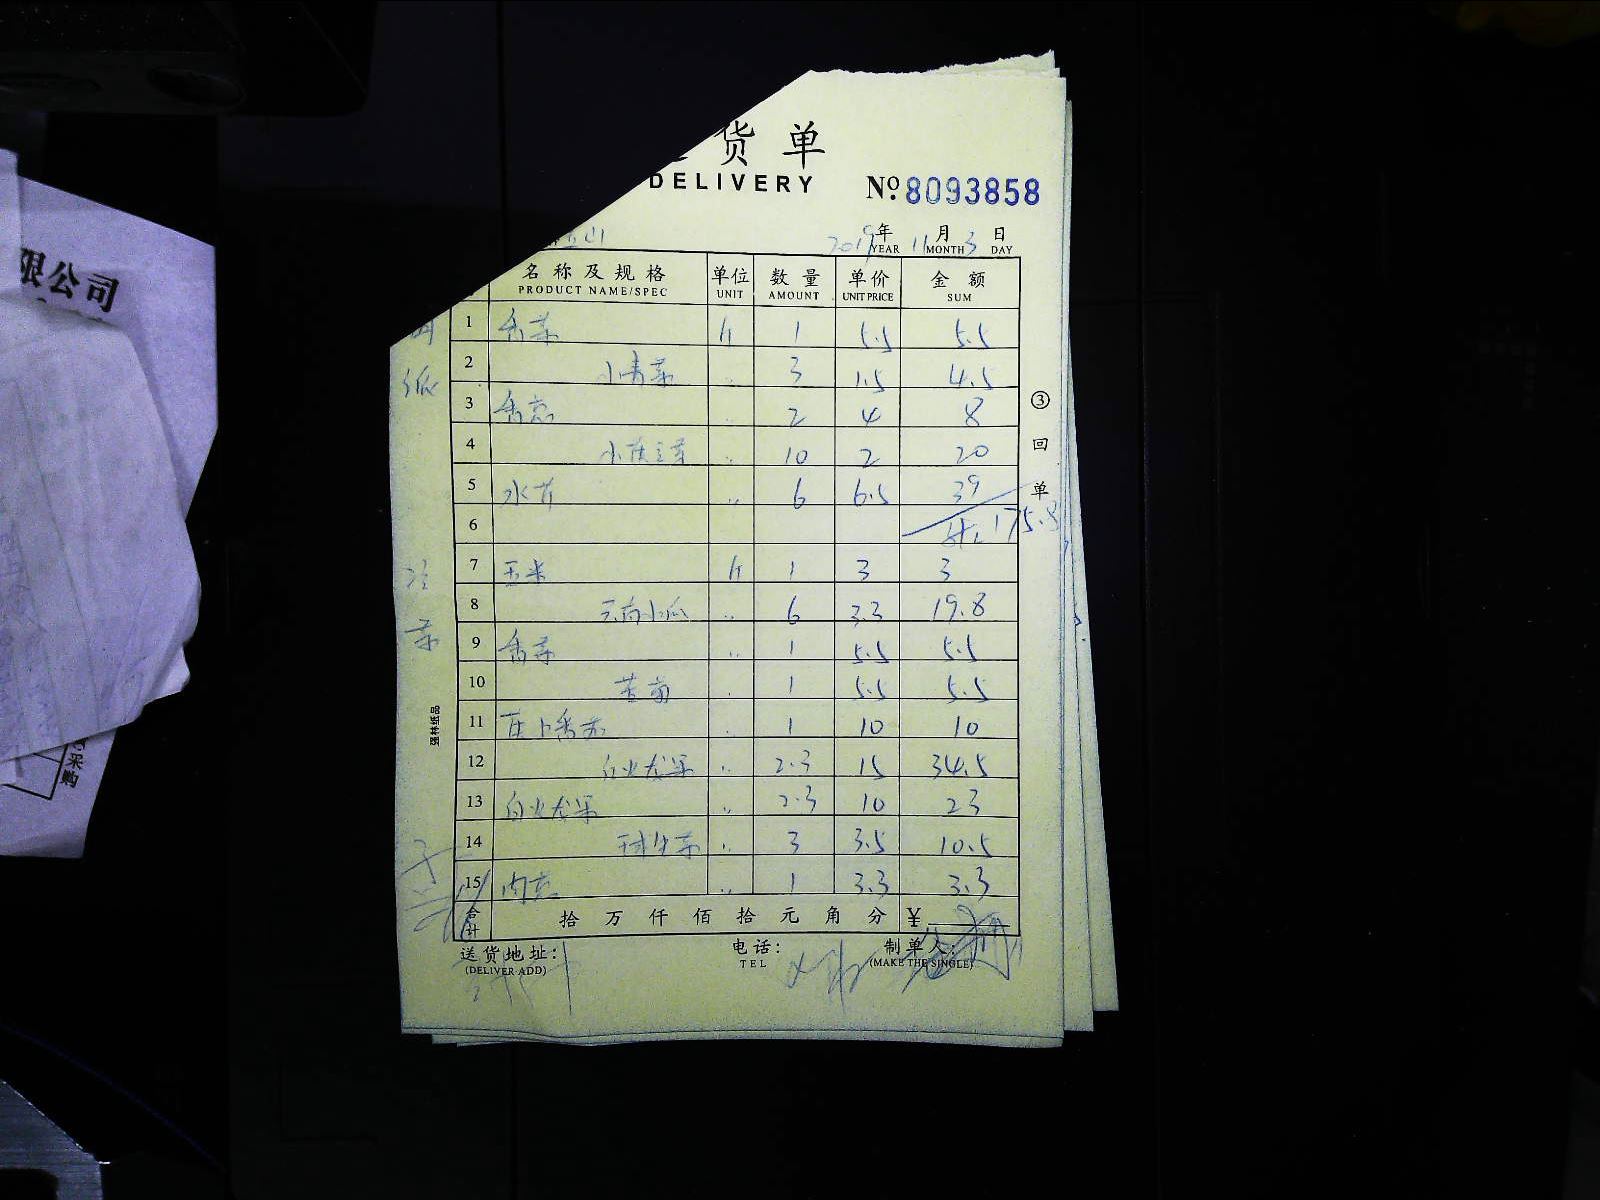 货单
DELIVERY № 8093858
2019年 11月 3日
YEAR MONTH DAY
名称及规格 单位 数量 单价 金额
PRODUCT NAME/SPEC UNIT AMOUNT UNIT PRICE SUM
1 香菜 斤 1 5.5 5.5
2 小青菜 〃 3 1.5 4.5
3 香葱 〃 2 4 8
4 〃 10 2 20
5 水芹 〃 6 6.5 39
6 175.8
7 玉米 斤 1 3 3
8 〃 6 3.3 19.8
9 香菜 〃 1 5.5 5.5
10 苦菊 〃 1 5.5 5.5
11 〃 1 10 10
12 白火龙果 〃 2.3 15 34.5
13 白火龙果 〃 2.3 10 23
14 〃 3 3.5 10.5
15 〃 1 3.3 3.3
合计 拾万仟佰拾元角分 ¥
送货地址: 电话: 制单人:
(DELIVER ADD) TEL (MAKE THE SINGLE)
③回单
冷菜
强林纸品
限公司
采购